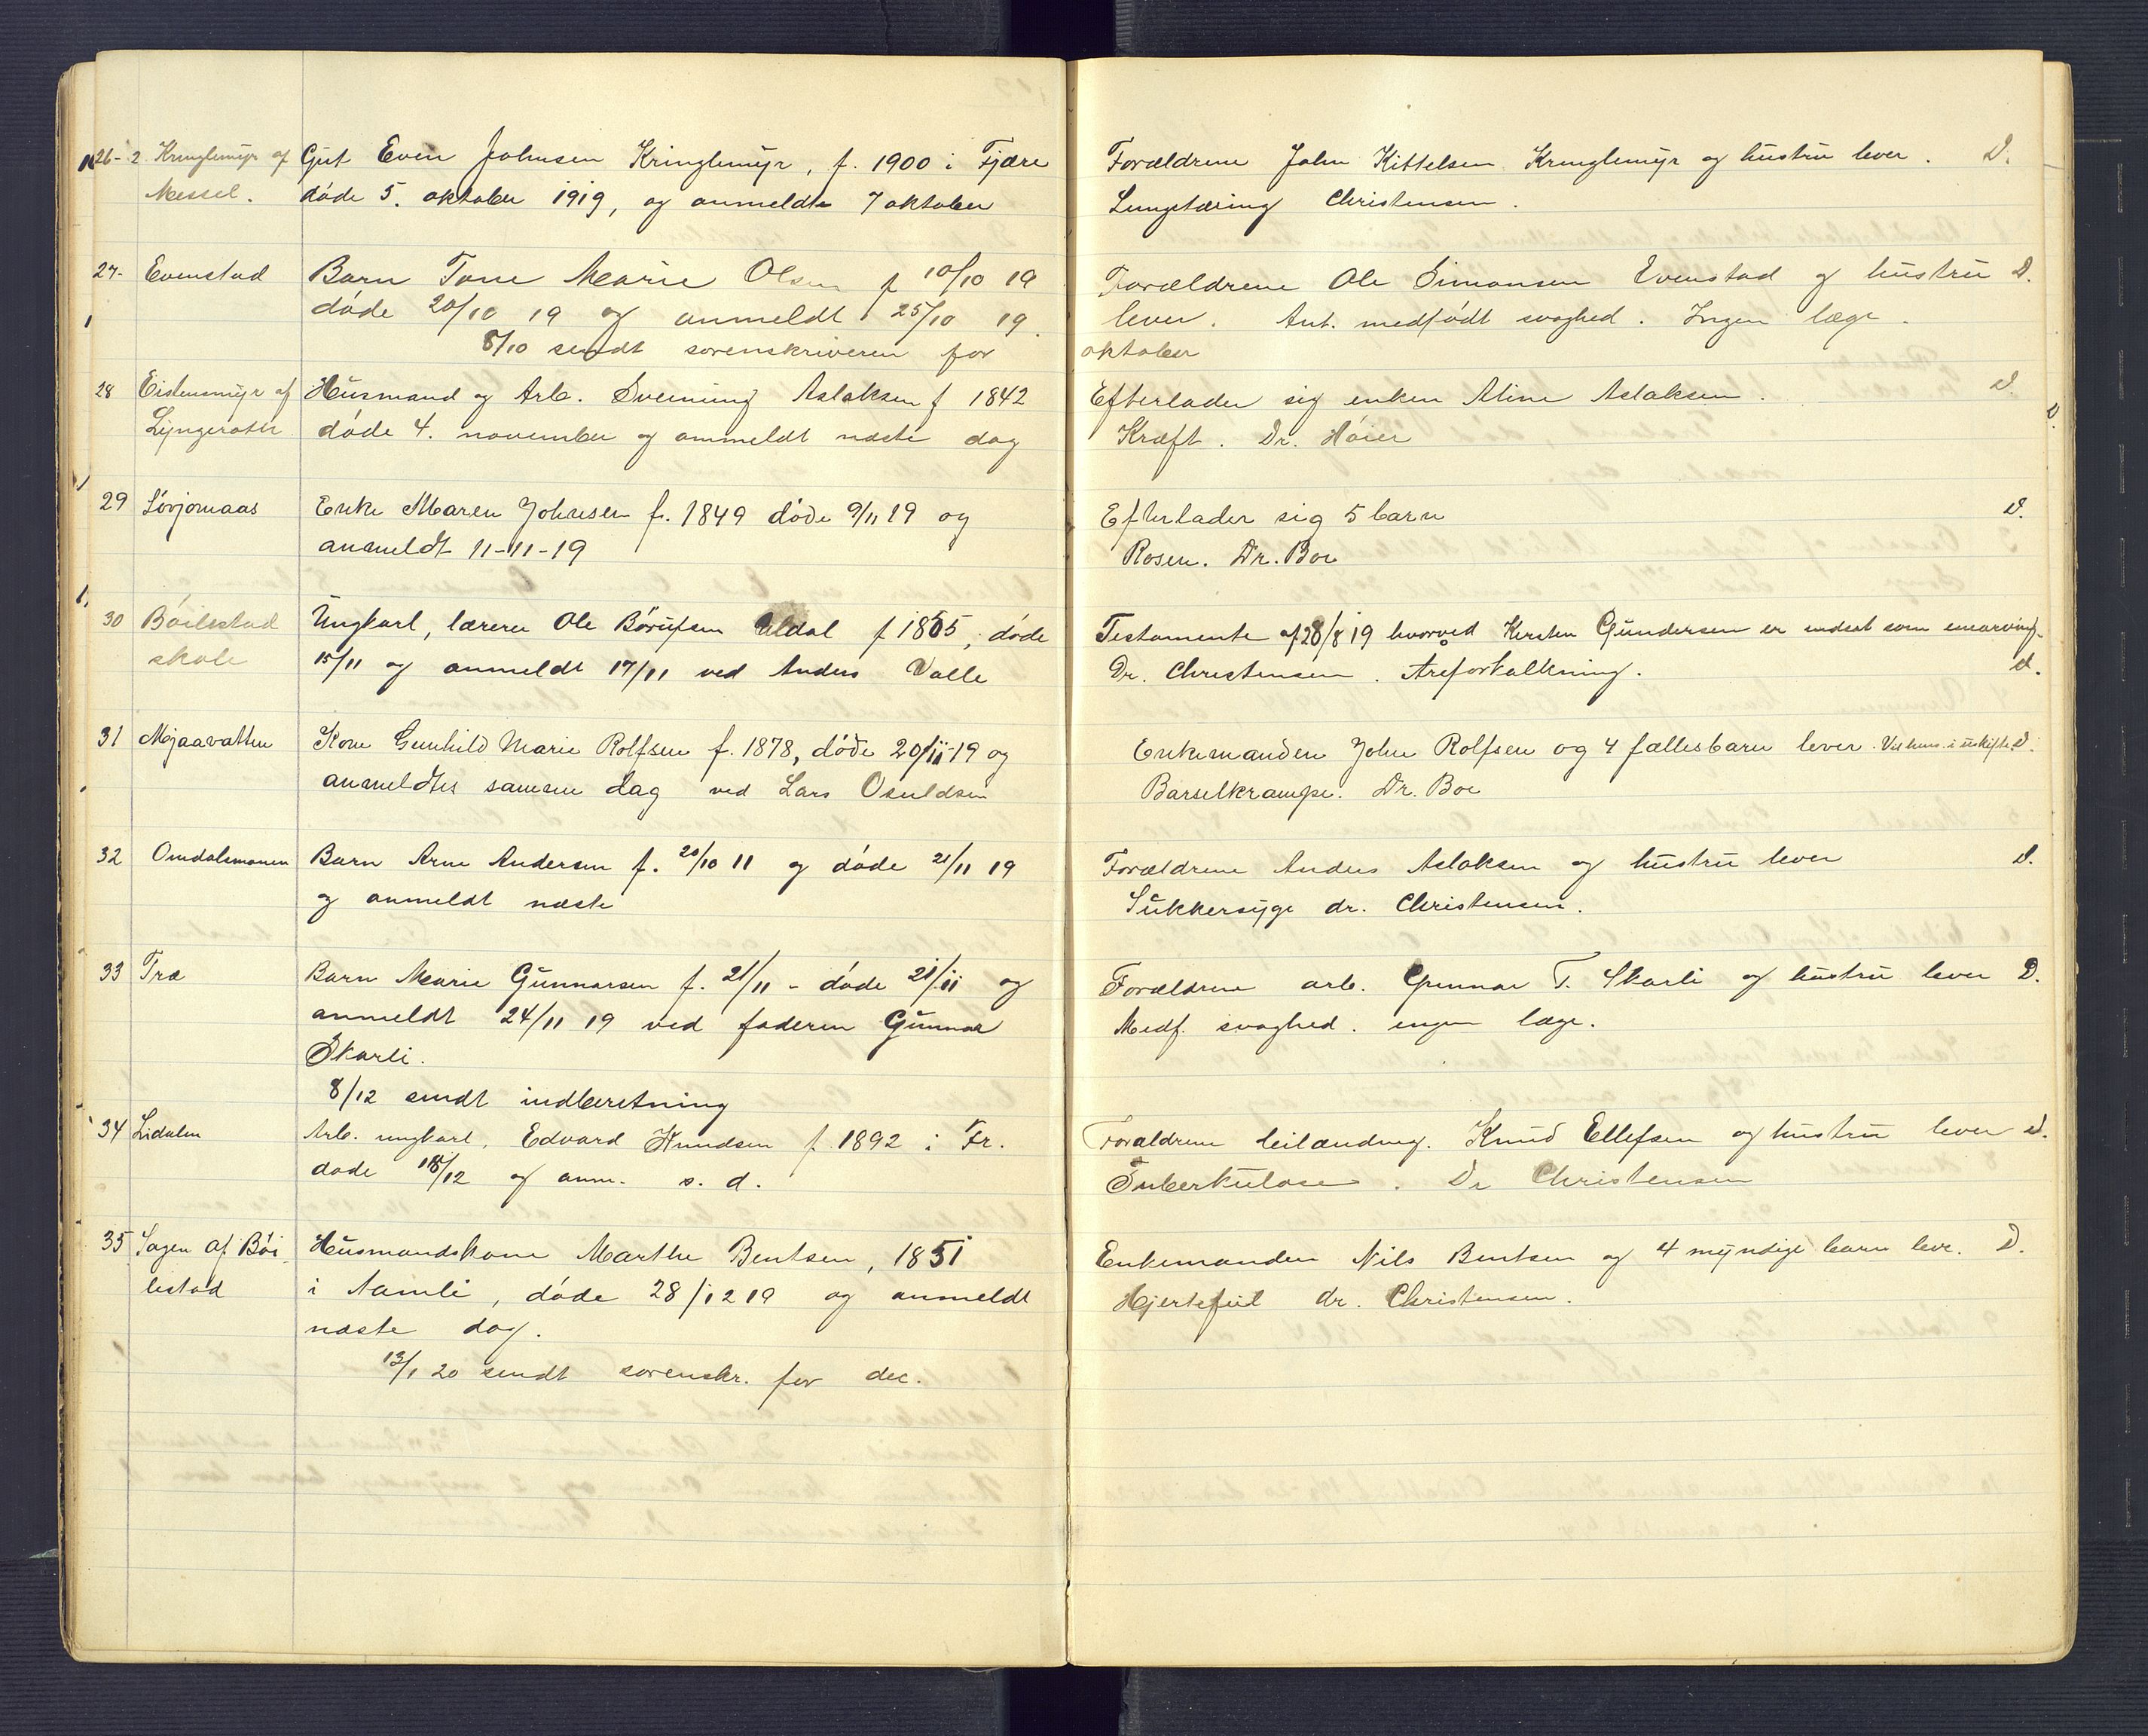 26- 2 Kringlemyr af Gut Even Johnsen Kringlemyr, f. 1900 i Fjære
Messel. døde 5. oktober 1919, og anmeldte 7 oktober
27- Evenstad Barn Tone Marie Olsen f 10/10 19
døde 20/10 19 og anmeldt 25/10 19.
8/10 sendt sorenskriveren for
28 Eistensmyr af Husmand og Arb. Svenning Aslaksen f 1842
Lyngeroth døde 4. november og anmeldt næste dag
29 Løvjomaas Enke Maren Johnsen f. 1849 døde 9/11 19 og
anmeldt 11-11-19
30 Bøilestad Ungkarl, lærer Ole Børufsen Uldal f 1865, døde
skole 15/11 og anmeldt 17/11 ved Anders Valle
31 Mjaavatten Kone Gunhild Marie Rolfsen f. 1878, døde 20/11-19 og
anmeldtes samme dag ved Lars Osuldsen
32 Omdalsmonen Barn Arne Andersen f. 20/10 11 og døde 21/11 19
og anmeldt næste
33 Træ Barn Marie Gunnarsen f. 21/11 - døde 21/11 og
anmeldt 24/11 19 ved faderen Gunnar
Skarli.
8/12 sendt indberetning
34 Lidalen Arb. ungkarl, Edvard Knudsen f. 1892 i Fr.
døde 18/12 og anm. s. d.
35 Sagen af Bøi Husmandskone Marthe Bentsen, 1851
lestad i Aamli, døde 28/12 19 og anmeldt
næste dag.
13/1 20 sendt sorenskr. for dec.
Forældrene John Kittelsen Kringlemyr og hustru lever. D.
Lungetæring Christensen.
Forældrene Ole Simonsen Evenstad og hustru D.
lever. Ant. medfødt svaghed. Ingen læge.
oktober
Efterlader sig enken Aline Aslaksen. D.
Kræft. Dr. Høier
Efterlader sig 5 barn D.
Rosen. Dr. Boe
Testamente af 28/8 19 hvorved Kirsten Gundersen er indsat som enearving.
Dr. Christensen. Areforkalkning. D.
Enkemanden John Rolfsen og 4 fællesbarn lever. Vil hens. i uskifte D.
Barselkrampe. Dr. Boe
Forældrene Anders Aslaksen og hustru lever D.
Sukkersyge dr. Christensen.
Forældrene arb. Gunnar T. Skarli og hustru lever D.
Medf. svaghed. ingen læge.
Forældrene leilænding. Knud Ellefsen og hustru lever D.
Tuberkulose. Dr Christensen
Enkemanden Nils Bentsen og 4 myndige barn leve. D.
Hjertefeil dr. Christensen.